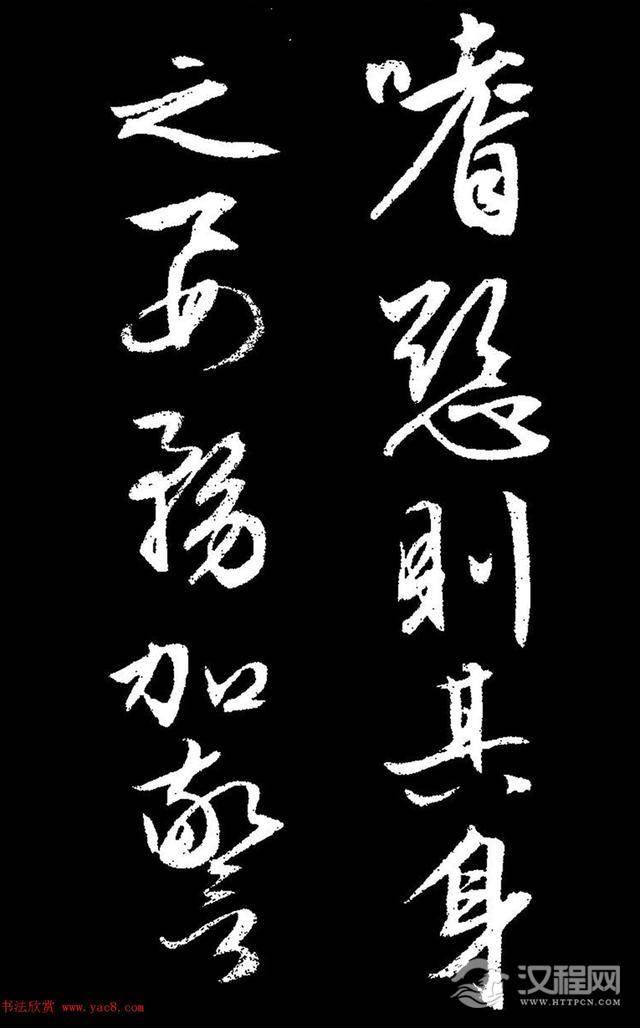 嗜慾則其身
之要務加警
书法欣赏 www.yac8.com
汉程网
WWW.HTTPCN.COM